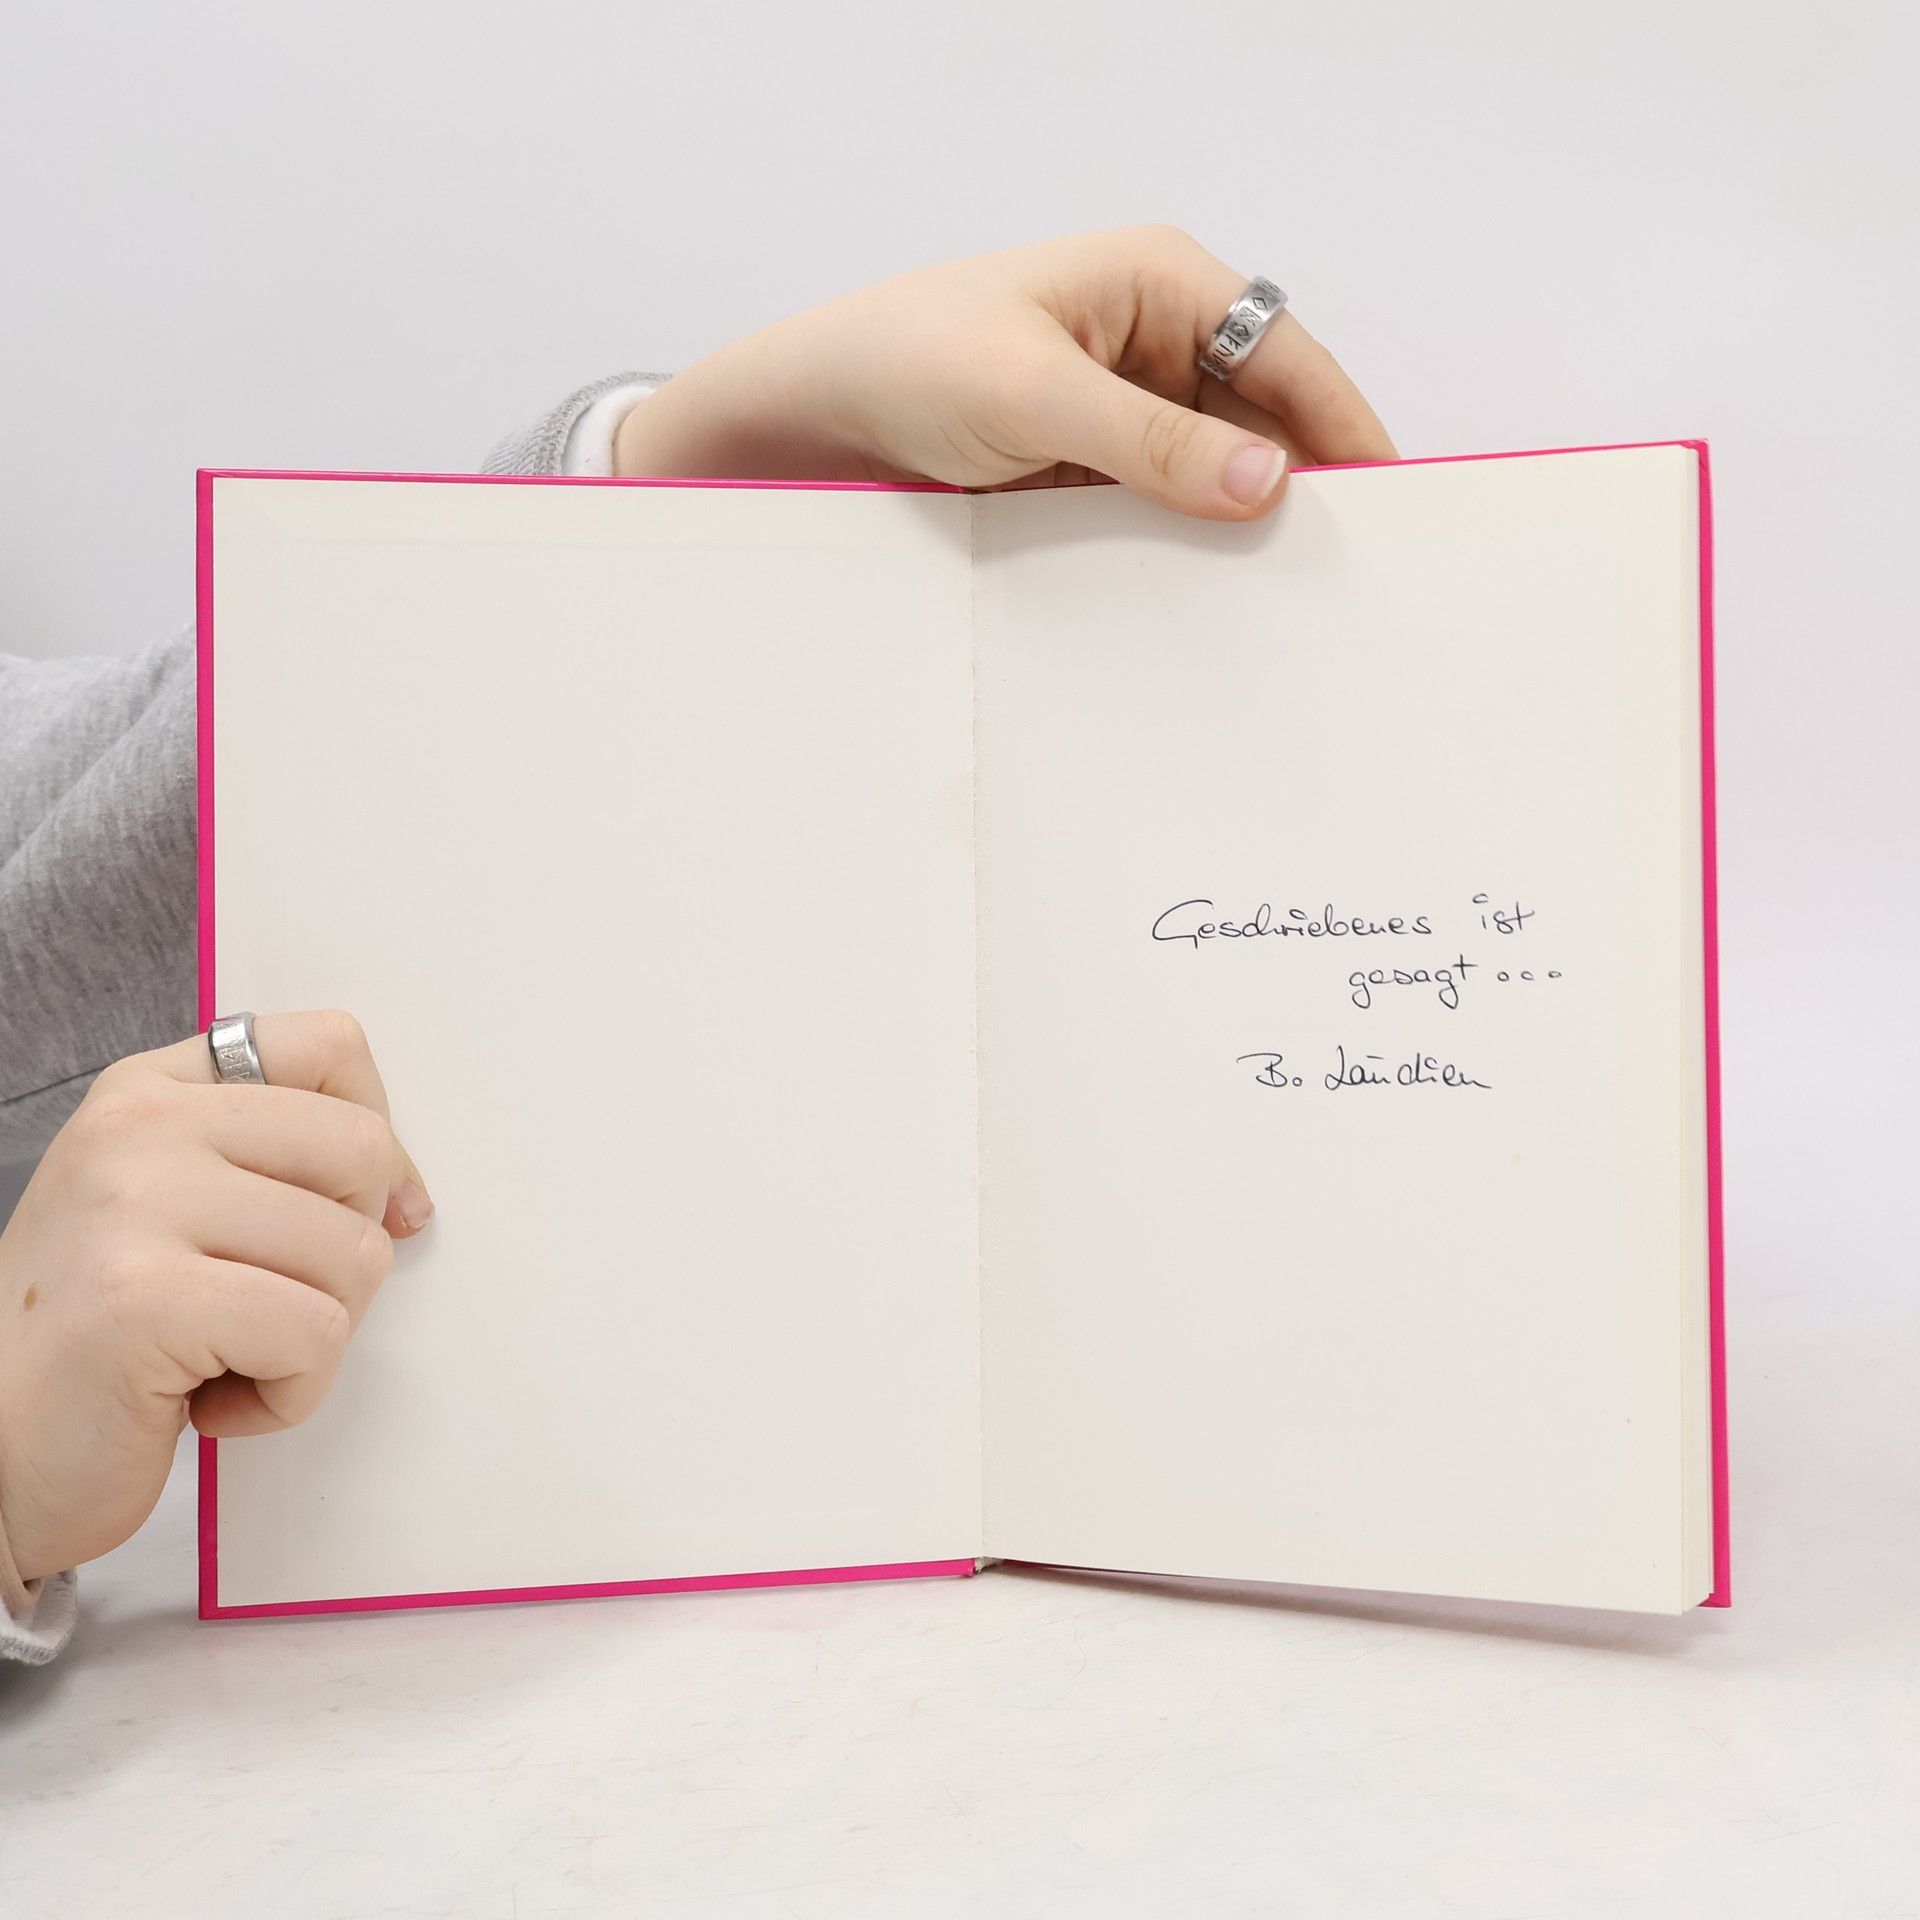 Geschriebenes ist
gesagt...
B. Laudien